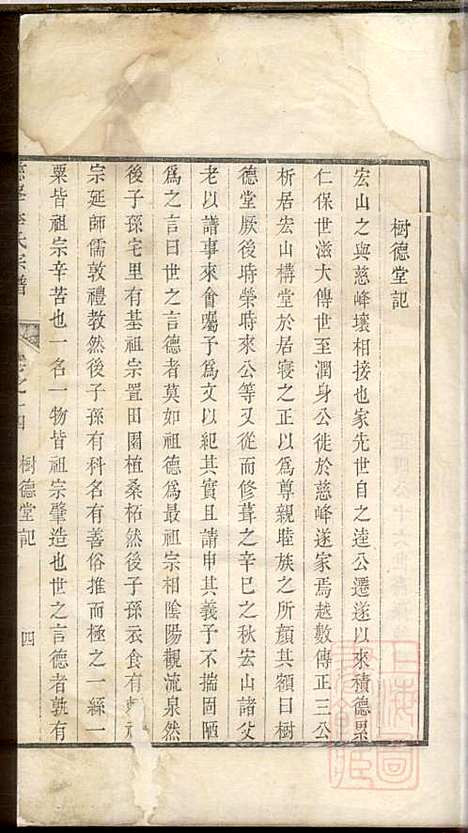 樹德堂記
宏山之與慈峰壤相接也家先世自之逵公遷遂以來積德累
仁保世滋大傳世至潤身公徙於慈峰遂家焉越數傳正三公
析居宏山構堂於居寢之正以爲尊親睦族之所顏其額曰樹
德堂厥後時榮時來公等又從而修葺之辛巳之秋宏山諸父
老以譜事來會囑予爲文以紀其實且請申其義予不揣固陋
爲之言曰世之言德者莫如祖德爲最祖宗相陰陽觀流泉然
後子孫宅里有基祖宗置田園植桑柘然後子孫衣食有
宗延師儒敦禮教然後子孫有科名有善俗推而極之一絲一
粟皆祖宗辛苦也一名一物皆祖宗肇造也世之言德者孰有
氏宗譜 卷之 四 樹德堂記 四
上海圖